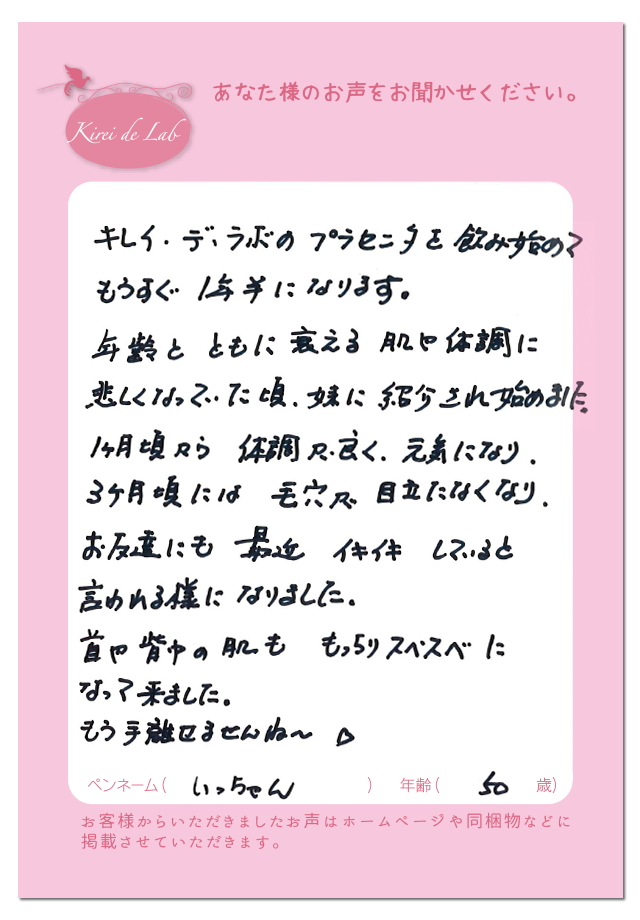 あなた様のお声をお聞かせください。
Kirei de Lab
キレイ・デ・ラボの プラセンタを 飲み始めて
もうすぐ 1年半に なります。
年齢と ともに 衰える 肌や 体調に
悲しくなっていた頃、妹に 紹介され始めました。
1ヶ月頃から 体調が良く、元気になり、
3ヶ月頃には 毛穴が 目立たなくなり、
お友達にも 最近 イキイキ していると
言われる様に なりました。
首や背中の 肌も もっちりスベスベに
なって来ました。
もう手離せませんね〜
ペンネーム( いっちゃん ) 年齢( 50 歳)
お客様からいただきましたお声はホームページや同梱物などに
掲載させていただきます。